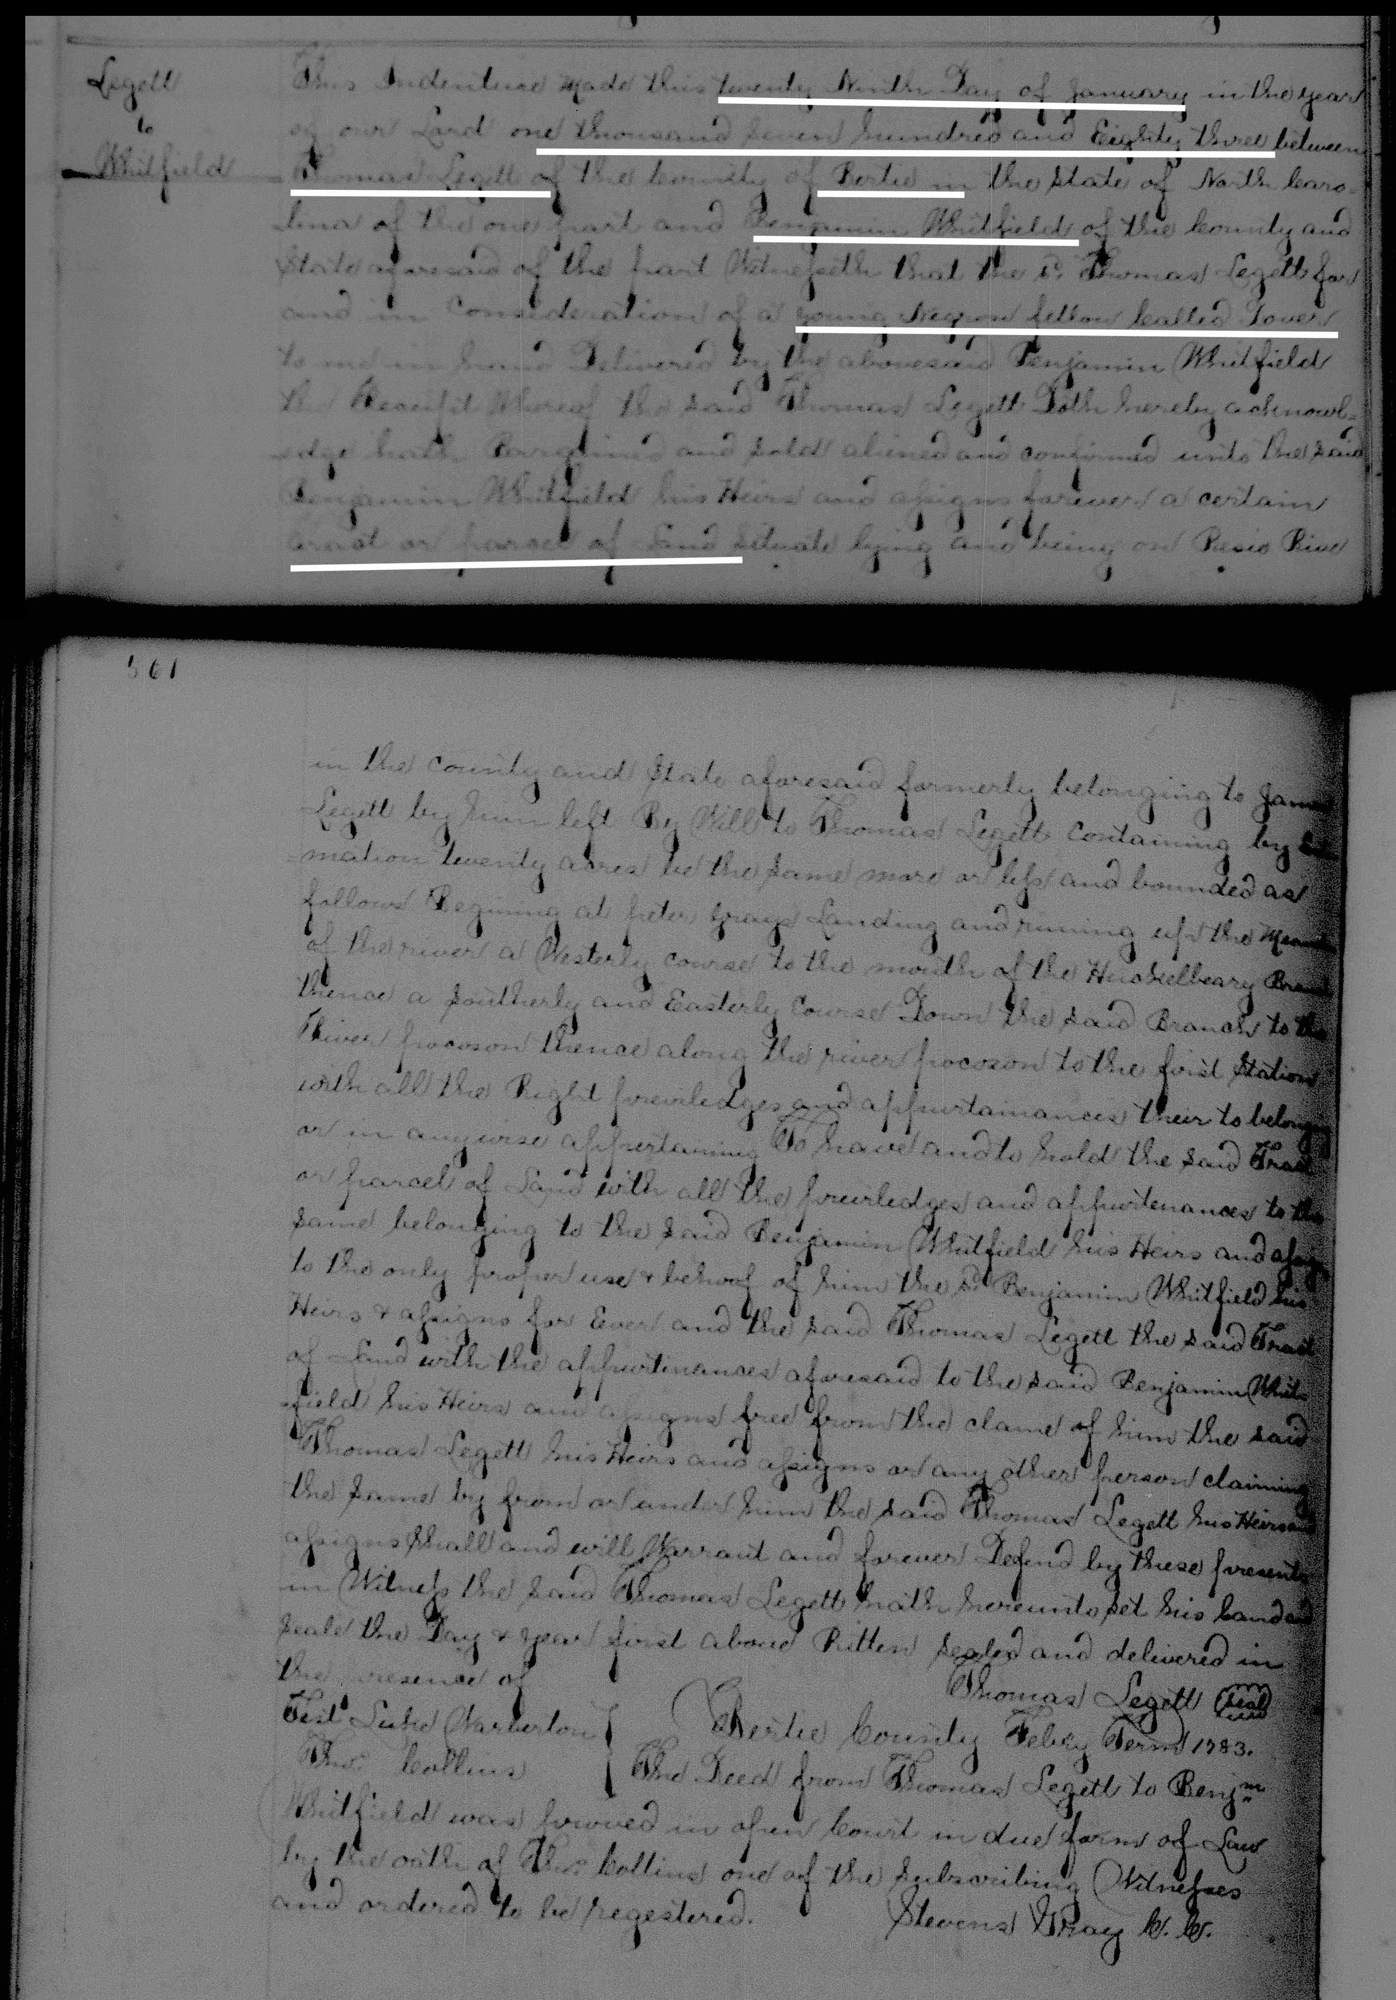 Legett
to
Whitfield
This Indenture Made this twenty Ninth Day of January in the year
of our Lord one thousand seven hundred and Eighty three between
Thomas Legett of the County of Bertie in the State of North Caro-
lina of the one part and Benjamin Whitfield of the County and
State aforesaid of the part Witnesseth that the sd. Thomas Legett for
and in Consideration of a young Negron fellow Called Tower
to me in hand Delivered by the abovesaid Benjamin Whitfield
the Receipt Whereof the said Thomas Legett Doth hereby acknowl-
edge hath Bargained and sold aliened and confirmed unto the said
Benjamin Whitfield his Heirs and assigns forever a certain
tract or parcel of Land situate lying and being on River
361
in the County and State aforesaid formerly belonging to James
Legett by him left By Will to Thomas Legett Containing by
mation twenty acres be the same more or less and bounded as
follows Begining at peter Grays Landing and runing up the
of the river a Westerly course to the mouth of the Huckelbeary
thence a southerly and Easterly Course Down the said Branch to the
River pocoson thence along the river pocoson to the first Station
with all the Right previledges and appurtainances their to
or in anywise appertaining To have and to hold the said Tract
or parcel of Land with all the previledges and appurtenances to the
same belonging to the said Benjamin Whitfield his Heirs and
to the only proper use & behoof of him the sd Benjamin Whitfield his
Heirs & assigns for Ever and the said Thomas Legett the said Tract
of Land with the appurtinances aforesaid to the said Benjamin Whit-
-field his Heirs and assigns free from the clame of him the said
Thomas Legett his Heirs and assigns or any other person claiming
the same by from or under him the said Thomas Legett his Heirs and
assigns Shall and will Warrant and forever Defend by these presents
in Witness the said Thomas Legett hath hereunto set his hand and
seale the Day & year first above Ritten sealed and delivered in
the presence of
Thomas Legett seal
Test Luke Warburton
Thos. Collins
Bertie County Febry Term 1783.
The Deed from Thomas Legett to Benjm
Whitfield was proved in open Court in due form of Law
by the oath of Thos. Collins one of the subscribing Witnesses
and ordered to be regestered.
Stevens Gray C. C.